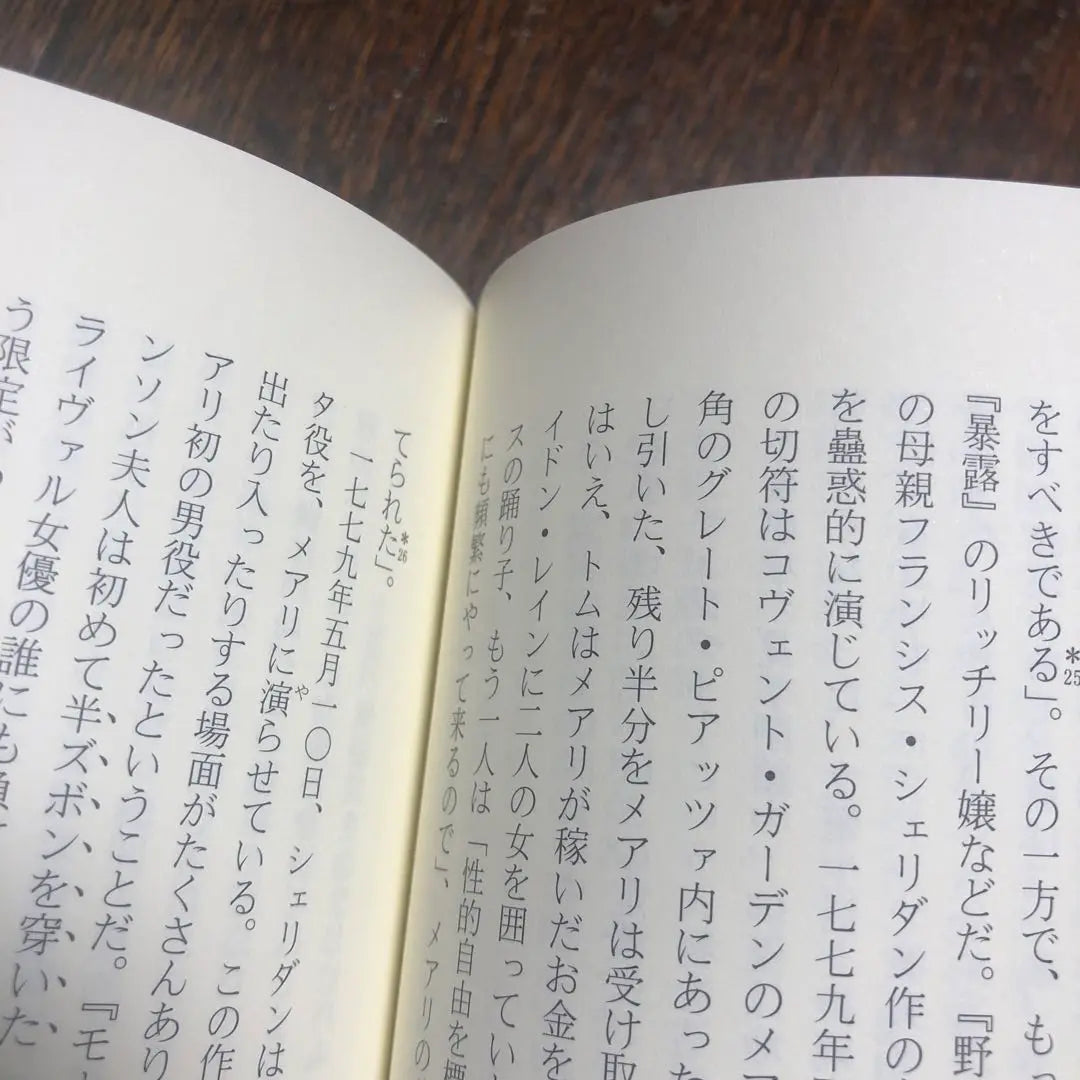 をすべきである」。その一方で、もっ
*25
『暴露』のリッチリー嬢などだ。『野
の母親フランシス・シェリダン作の
を蠱惑的に演じている。一七七九年
の切符はコヴェント・ガーデンのメ
角のグレート・ピアッツァ内にあった
し引いた、残り半分をメアリは受け取
はいえ、トムはメアリが稼いだお金を
イドン・レインに二人の女を囲ってい
スの踊り子、もう一人は「性的自由を
にも頻繁にやって来るので」、メアリの
てられた」。
*26
一七七九年五月一〇日、シェリダンは
タ役を、メアリに演らせている。この作
や
出たり入ったりする場面がたくさんあり
アリ初の男役だったということだ。『モ
ンソン夫人は初めて半ズボンを穿いた
ライヴァル女優の誰にも負
う限定が